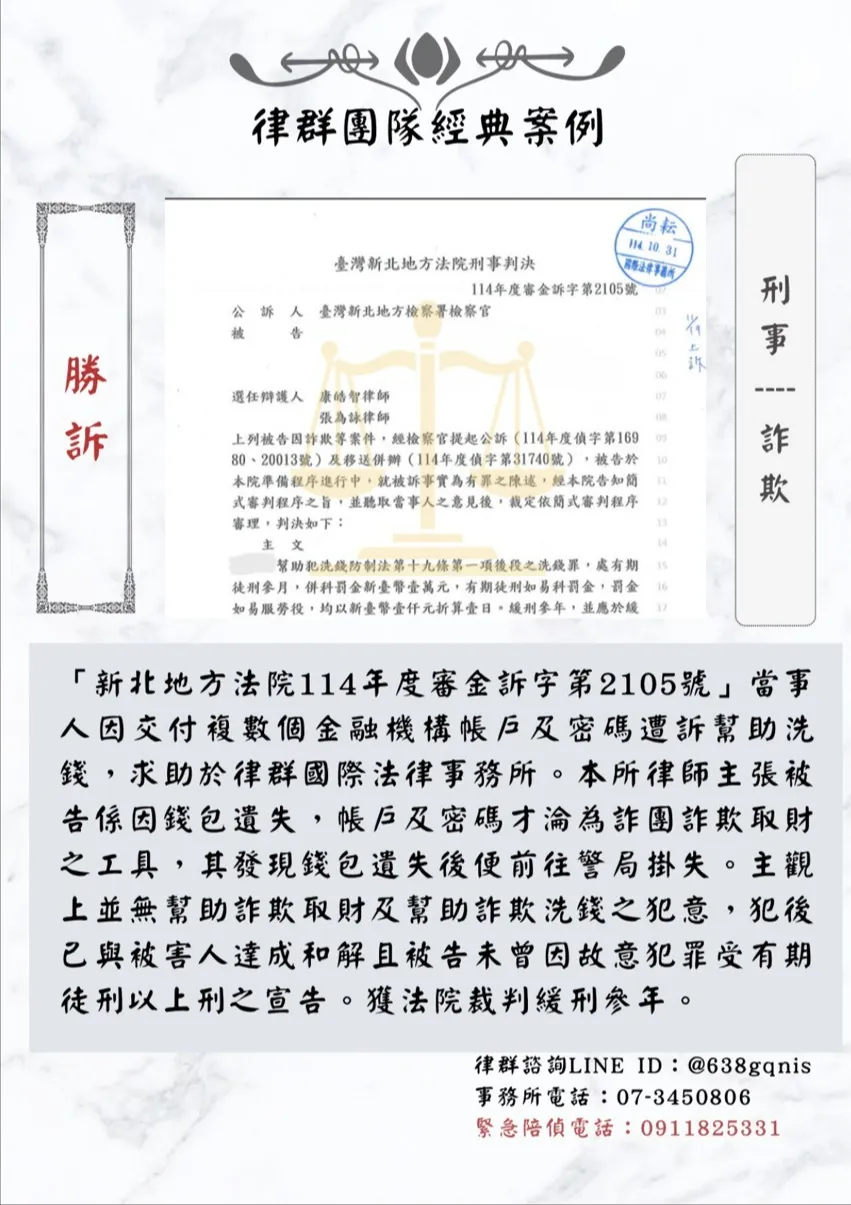 律群團隊經典案例
勝訴
刑事----詐欺
尚耘
114.10.31
國際法律事務所
臺灣新北地方法院刑事判決
114年度審金訴字第2105號
公訴人 臺灣新北地方檢察署檢察官
被告
選任辯護人 康皓智律師
張為詠律師
上列被告因詐欺等案件,經檢察官提起公訴(114年度偵字第169
80、20013號)及移送併辦(114年度偵字第31740號),被告於
本院準備程序進行中,就被訴事實為有罪之陳述,經本院告知簡
式審判程序之旨,並聽取當事人之意見後,裁定依簡式審判程序
審理,判決如下:
主文
幫助犯洗錢防制法第十九條第一項後段之洗錢罪,處有期
徒刑參月,併科罰金新臺幣壹萬元,有期徒刑如易科罰金,罰金
如易服勞役,均以新臺幣壹仟元折算壹日。緩刑參年,並應於緩
02
03
04
05
06
07
08
09
10
11
12
13
14
15
16
17
「新北地方法院114年度審金訴字第2105號」當事
人因交付複數個金融機構帳戶及密碼遭訴幫助洗
錢,求助於律群國際法律事務所。本所律師主張被
告係因錢包遺失,帳戶及密碼才淪為詐團詐欺取財
之工具,其發現錢包遺失後便前往警局掛失。主觀
上並無幫助詐欺取財及幫助詐欺洗錢之犯意,犯後
已與被害人達成和解且被告未曾因故意犯罪受有期
徒刑以上刑之宣告。獲法院裁判緩刑參年。
律群諮詢LINE ID:@638gqnis
事務所電話:07-3450806
緊急陪偵電話:0911825331